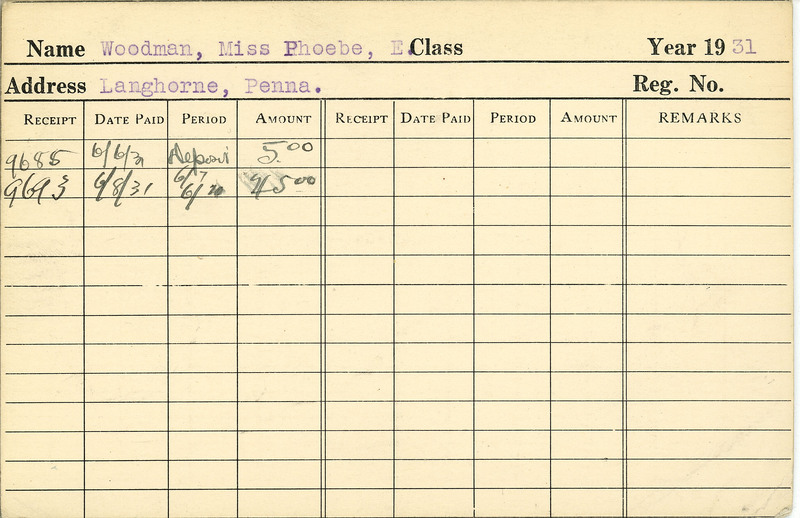 Name Woodman, Miss Phoebe, E. Class Year 1931
Address Langhorne, Penna. Reg. No.
RECEIPT DATE PAID PERIOD AMOUNT RECEIPT DATE PAID PERIOD AMOUNT REMARKS
9685 6/6/31 Deposit 5.00
9693 6/8/31 6/7 6/20 45.00